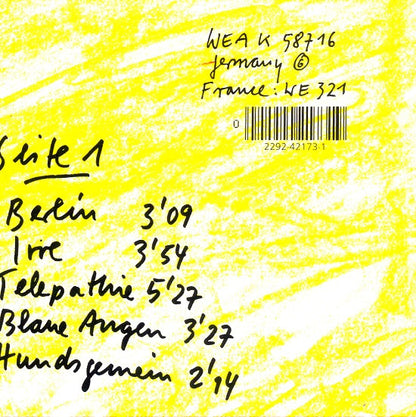 WEA K 58716
Germany ⑥
France: WE 321
0
2292-42173-1
Seite 1
Berlin 3'09
Irre 3'54
Telepathie 5'27
Blaue Augen 3'27
Hundsgemein 2'14